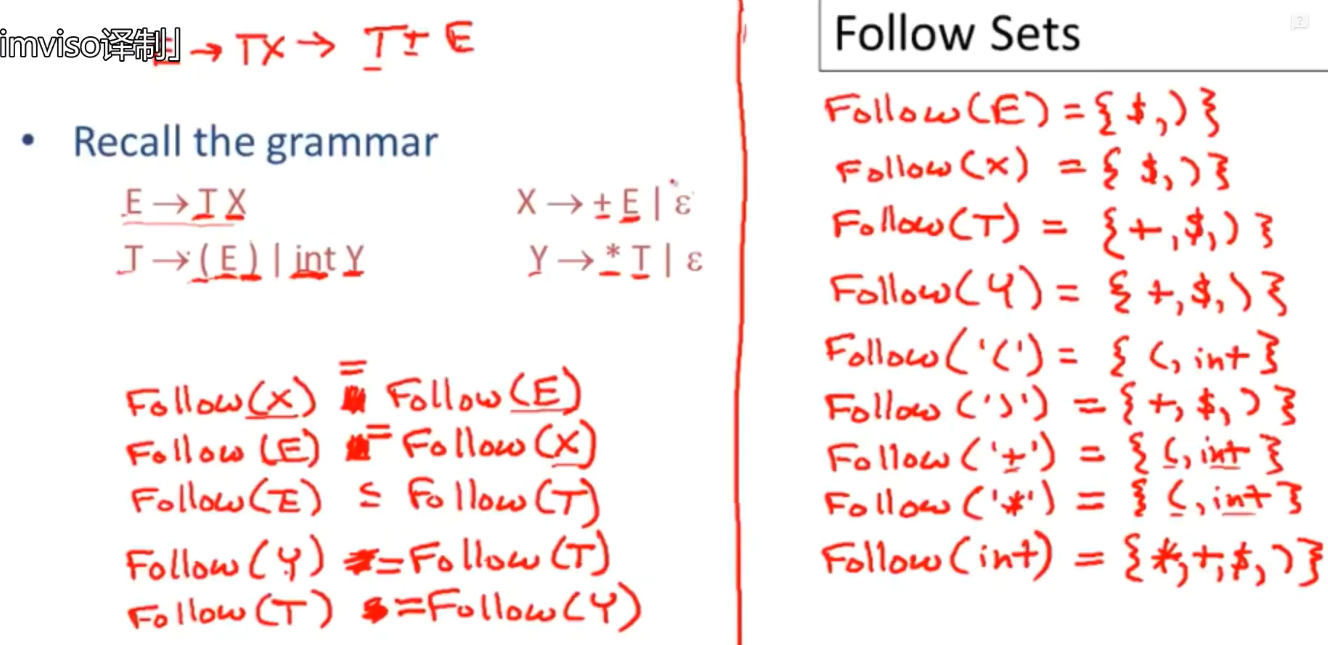 imviso译制」
E → TX → T + E
• Recall the grammar
E → T X        X → + E | ε
T → ( E ) | int Y        Y → * T | ε
Follow(X) = Follow(E)
Follow(E) = Follow(X)
Follow(E) ⊆ Follow(T)
Follow(Y) = Follow(T)
Follow(T) = Follow(Y)
Follow Sets
Follow(E) = { $, ) }
Follow(X) = { $, ) }
Follow(T) = { +, $, ) }
Follow(Y) = { +, $, ) }
Follow('(') = { (, int }
Follow(')') = { +, $, ) }
Follow('+') = { (, int }
Follow('*') = { (, int }
Follow(int) = { *, +, $, ) }